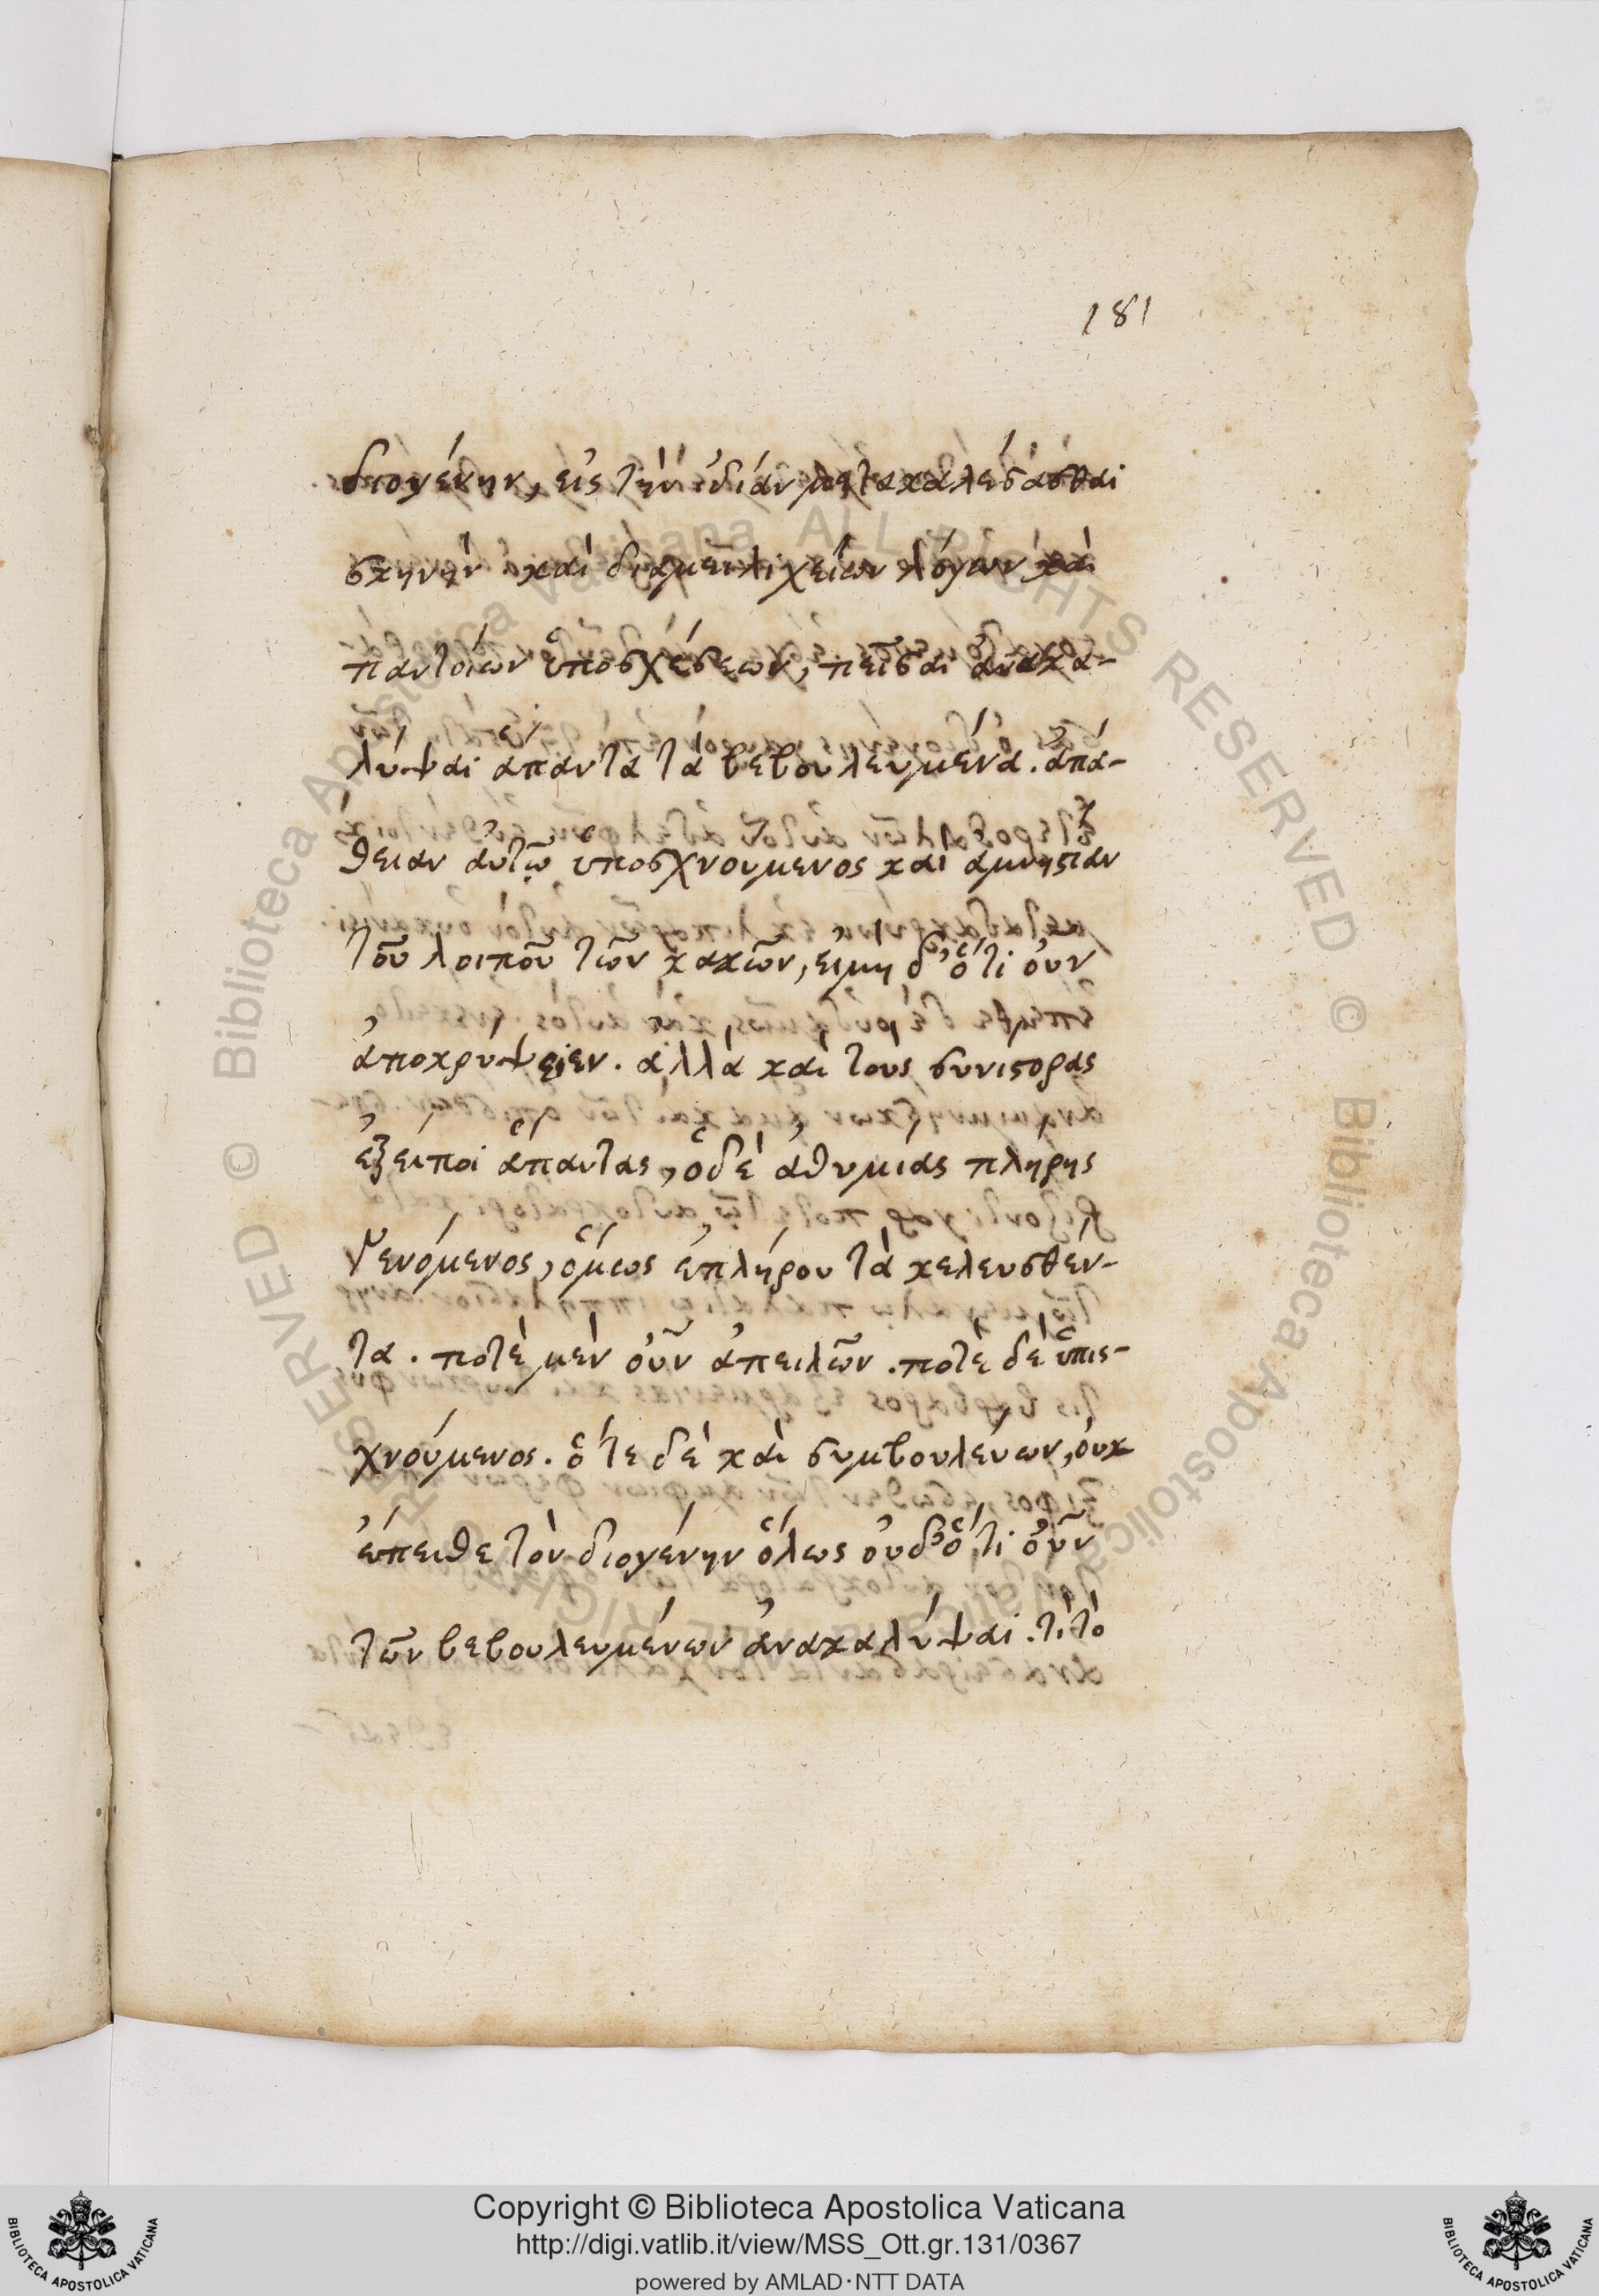 181
διογένην, εἰς τὴν ἰδίαν μετακαλέσασθαι
σκηνὴν καὶ διὰ μειλιχείων λόγων καὶ
παντοίων ὑποσχέσεων, πεῖσαι ἀνακα-
λύψαι ἅπαντα τὰ βεβουλευμένα. ἀπά-
θειαν αὐτῷ ὑποσχνούμενος καὶ ἀμνηστίαν
τοῦ λοιποῦ τῶν κακῶν, εἰμὴ δ' ὅτι οὖν
ἀποκρύψειεν. ἀλλὰ καὶ τοὺς συνίστορας
ἐξείποι ἅπαντας, ὁδὲ ἀθυμίας πλήρης
γενόμενος, ὅμως ἐπλήρου τὰ κελευσθέν-
τα. ποτὲ μὲν οὖν ἀπειλῶν. ποτὲ δὲ ὑπισ-
χνούμενος. ὅτε δὲ καὶ συμβουλεύων, οὐκ
ἔπειθε τὸν διογένην ὅλως οὐδ' ὅτι οὖν
τῶν βεβουλευμένων ἀνακαλύψαι. τί τὸ
Biblioteca Apostolica Vaticana ALL RIGHTS RESERVED © Biblioteca Apostolica Vaticana ALL RIGHTS RESERVED ©
Copyright © Biblioteca Apostolica Vaticana
http://digi.vatlib.it/view/MSS_Ott.gr.131/0367
powered by AMLAD·NTT DATA
BIBLIOTECA APOSTOLICA VATICANA
BIBLIOTECA APOSTOLICA VATICANA